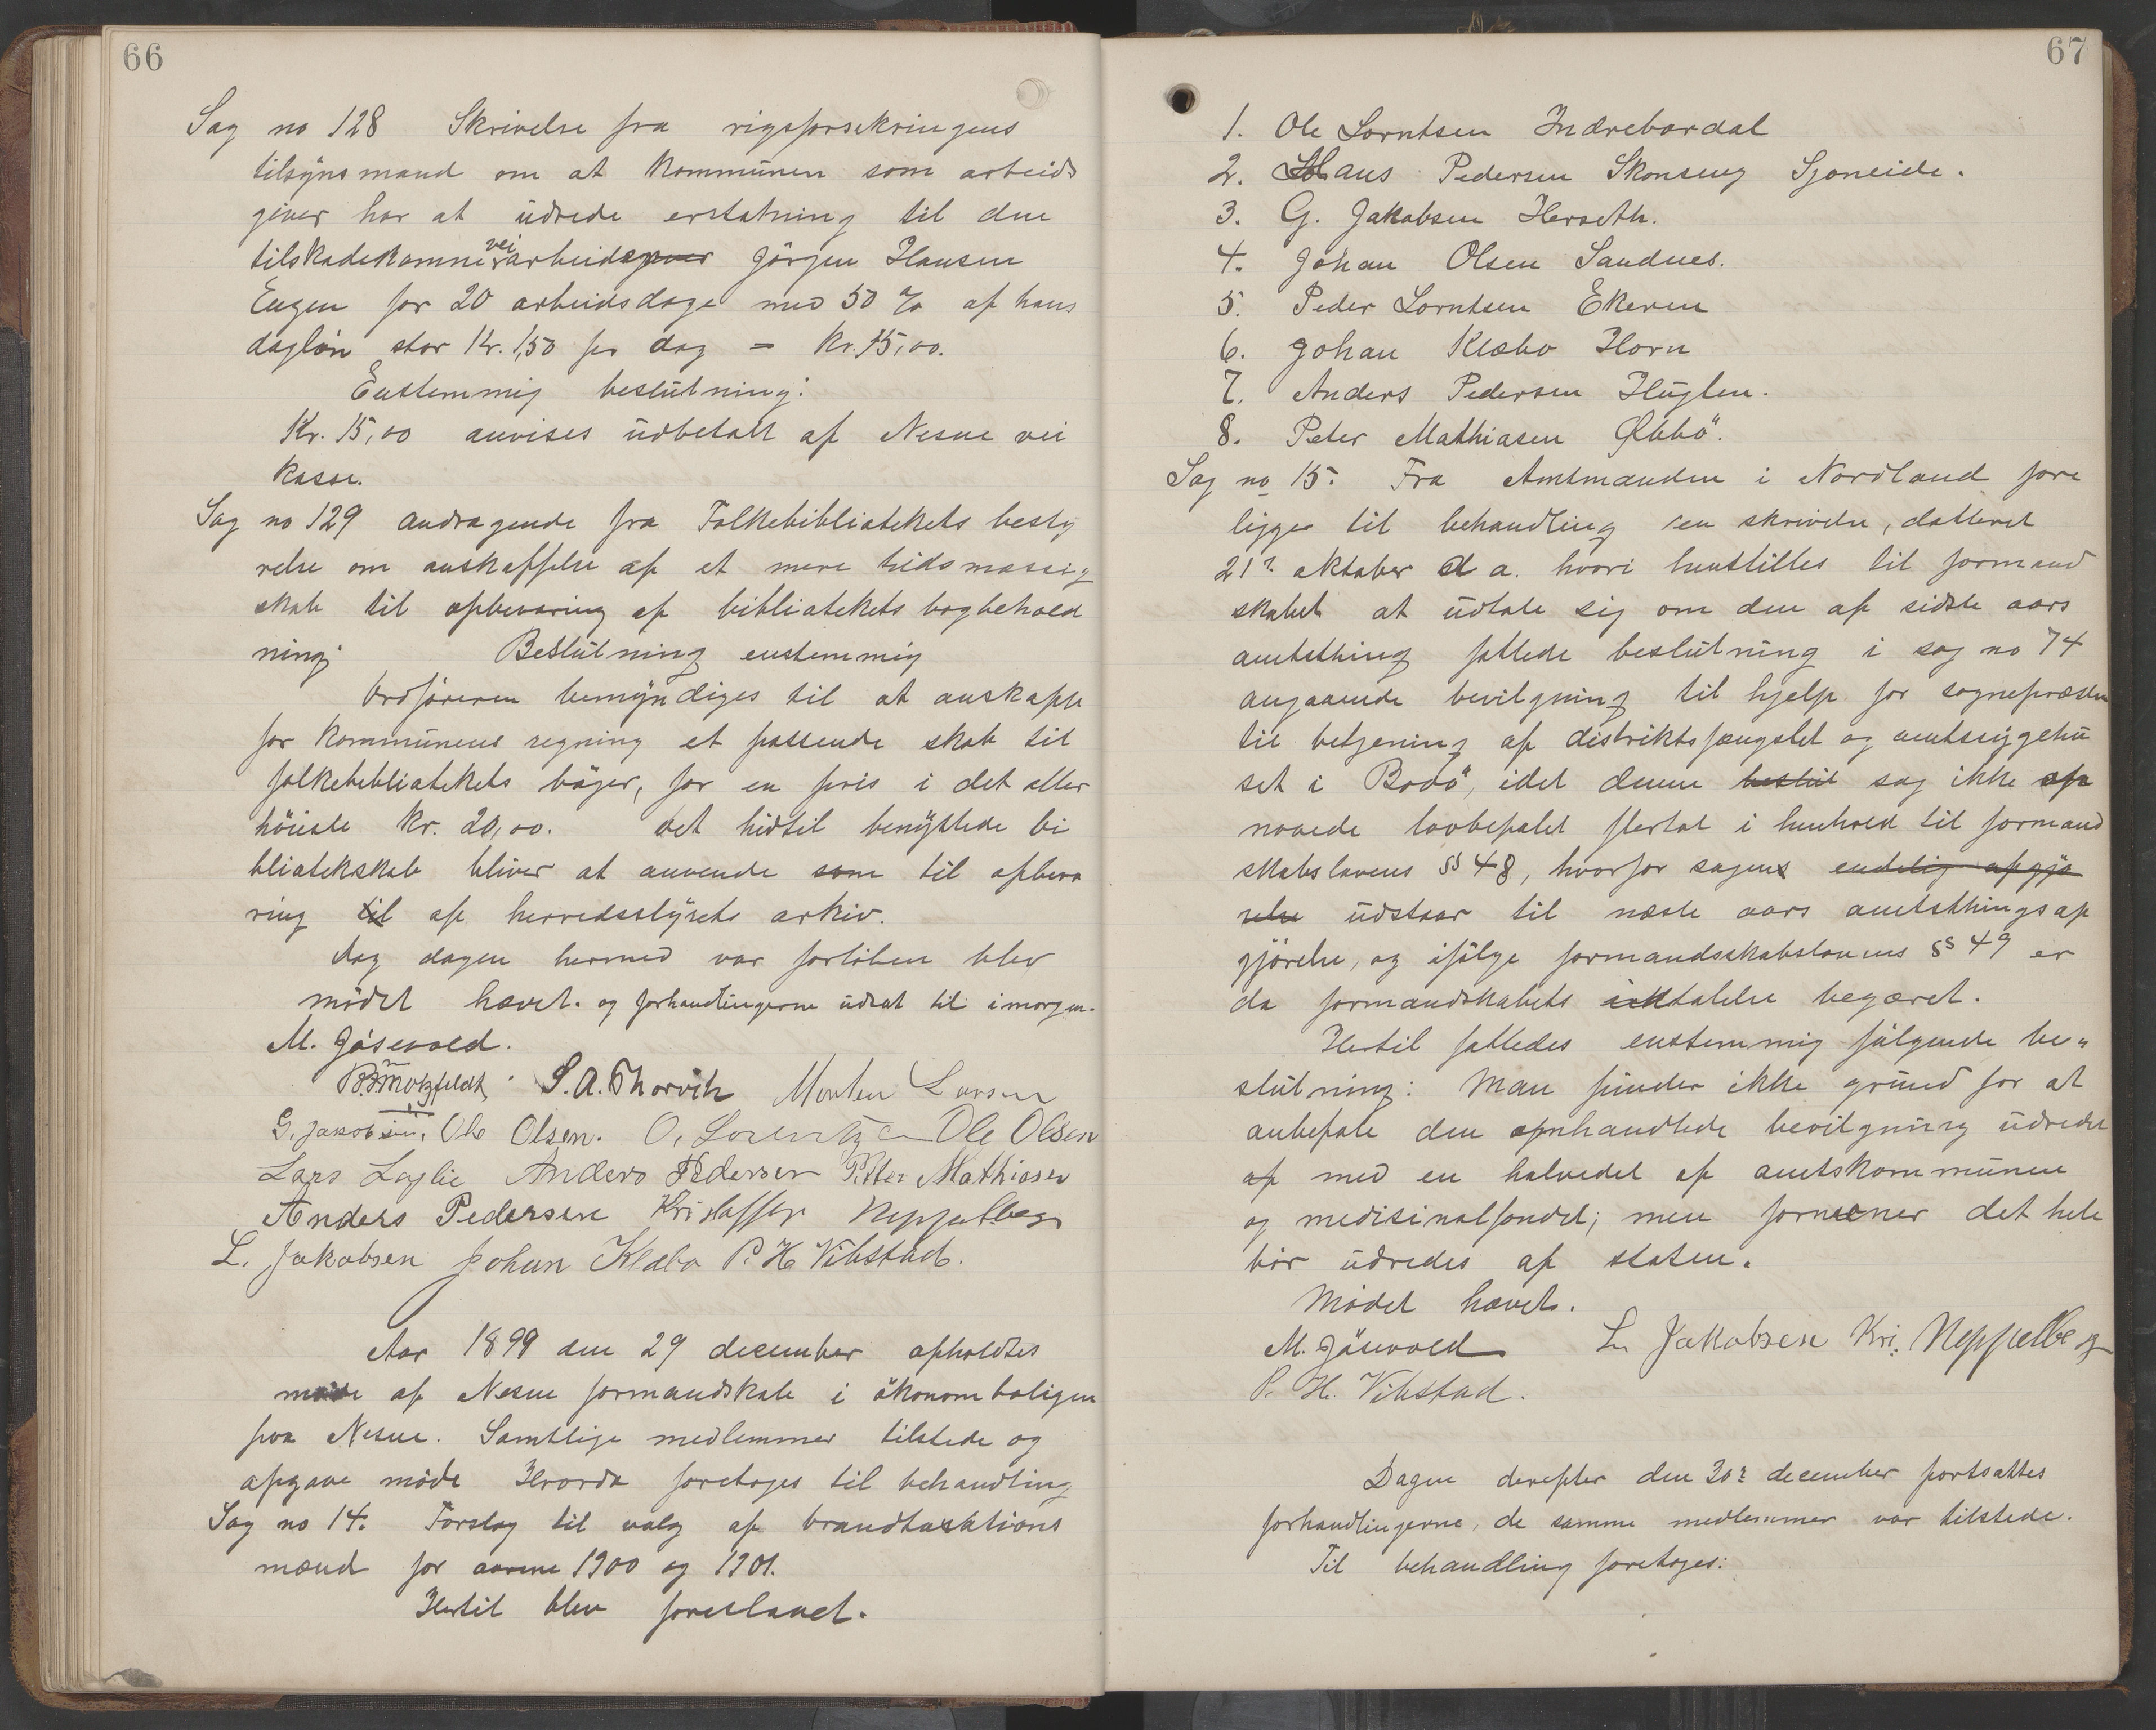 66
Sag no 128 Skrivelse fra rigsforsekringens
tilsÿnsmand om at kommünen som arbeids
giver har at üdrede erstatning til den
tilskadekomne vei arbeider Jörgen Hansen
Engen for 20 arbeidsdage med 50 % af hans
daglön stor Kr. 1,50 pr dag = kr. 15,00.
Enstemmig beslütning:
Kr. 15,00 anvises üdbetalt af Nesne vei
kasse.
Sag no 129 andragende fra Folkebibliatekets besty
relse om anskaffelse af et mere tidsmæssig
skab til opbevaring af bibliatekets bogbehold
ning. Beslütning enstemmig
Ordföreren bemÿndiges til at anskaffe
for kommünens regning et passende skab til
folkebibliatekets böger, for en pris i det aller
höieste kr. 20,00. det hidtil benÿttede bi
bliatekskab bliver at anvende som til opbeva
ring til af herredsstÿrets arkiv.
Aag dagen hermed var forlöben blev
mödet hævet. og forhandlingerne üdsat til imorgen.
M. Jösevold.
B. Motzfeldt. S. A. Thorvik Morten Larsen
G. Jakobsen. Ole Olsen. O. Lorentzen Ole Olsen
Lars Laglie Anders Pedersen Peter Mathiasen
Anders Pedersen Kristoffer Neppelberg
L. Jakobsen Johan Klæbo P. H. Vibstad.
Aar 1899 den 29 december afholdtes
möde af Nesne formandskab i ökonomboligen
paa Nesne. Samtlige medlemmer tilstede og
afgave möde Hvorda foretoges til behandling
Sag no 14. Forslag til valg af brandtakstions
mænd for aarene 1900 og 1901.
Hertil blev foreslaaet.
67
1. Ole Lorntsen Indrebardal
2. Hans Pedersen Skonseng Sjoneide.
3. G. Jakobsen Herseth.
4. Johan Olsen Sandnes.
5. Peder Lorntsen Ekeren
6. Johan Klæbo Horn
7. Anders Pedersen Hüglen.
8. Peter Mathiasen Æbbö.
Sag no 15. Fra Amtmanden i Nordland fore
ligger til behandling en skrivelse, datteret
21. oktober d a. hvori henstilles til formand
skabet at üdtale sig om den af sidste aars
amtsthing fattede beslütning i sag no 74
angaaende bevilgning til hjelp for sognepræsten
til betjening af distriktsfængslet og amtssÿgehü
set i Bodö, idet denne beslüt sag ikke op
naaede lovbefalet flertal i henhold til formand
skabslovens §§ 48, hvorfor sagens endelig afgjö
relse üdstaar til næste aars amtsthings af
gjörelse, og ifölge formandsskabslovens §§ 49 er
da formandskabets üdtalelse begæret.
Hertil fattedes enstemmig fölgende be„
slütning: Man finder ikke gründ for at
anbefale den omhandlede bevilgning üdredet
af med en halvedel af amtskommünen
og medisinalfondet; men formener det hele
bör üdredes af staten.
Mödet hævet.
M. Jösevold L. Jakobsen Kri. Neppelberg
P. H. Vibstad.
Dagen derefter den 30. december fortsattes
forhandlingerne, de samme medlemmer var tilstede.
Til behandling foretoges: